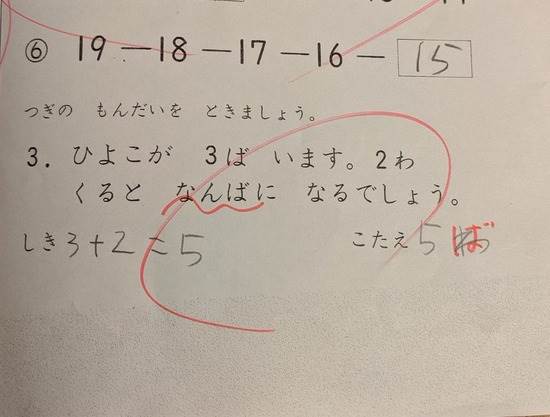 ⑥ 19 ー 18 ー 17 ー 16 ー 15
つぎの もんだいを ときましょう。
3. ひよこが 3ば います。2わ
くると なんばに なるでしょう。
しき 3+2=5 こたえ 5 ば